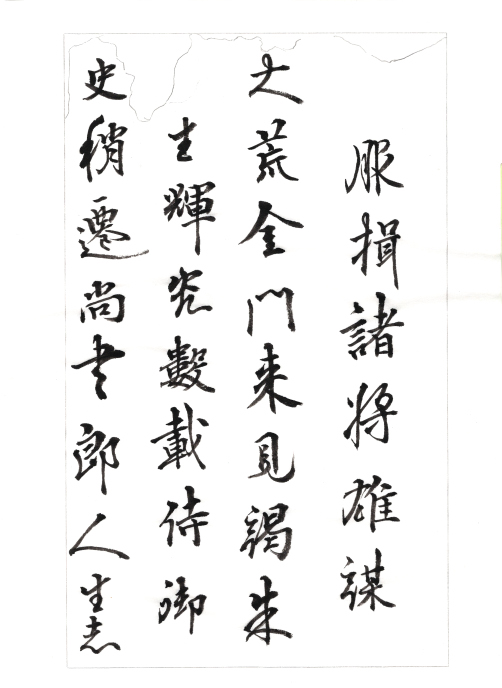 服揖諸將雄謀
大荒金門來見謁朱
主輝究數載待御
史稍遷尚書郎人生志